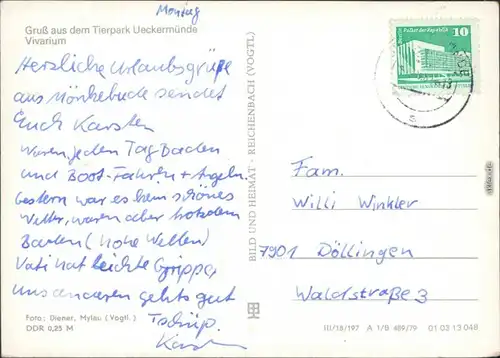 Montag
Gruß aus dem Tierpark Ueckermünde
Vivarium
Herzliche Urlaubsgrüße
aus Mönkebude sendet
Euch Karsten
Waren jeden Tag Baden
und Boot-Fahren + Angeln.
Gestern war es kein schönes
Wetter, waren aber trotzdem
Baden (hohe Wellen)
Vati hat leichte Grippe,
uns anderen gehts gut
Tschüß.
Karsten
Foto: Diener, Mylau (Vogtl.)
DDR 0,25 M
BILD UND HEIMAT · REICHENBACH (VOGTL)
10
Palast der Republik
Fam.
Willi Winkler
7901 Döllingen
Waldstraße 3
III/18/197 A 1/B 489/79 01 03 13 048